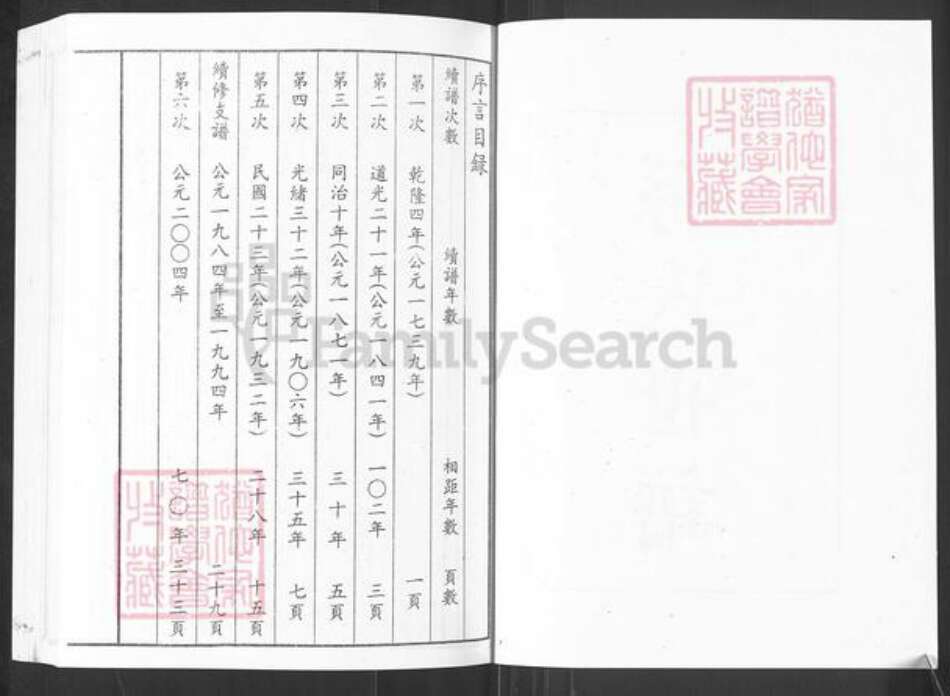 序言目録
續譜次數 續譜年數 相距年數 頁數
第一次 乾隆四年(公元一七三九年) 一頁
第二次 道光二十一年(公元一八四一年) 一〇二年 三頁
第三次 同治十年(公元一八七一年) 三十年 五頁
第四次 光緒三十二年(公元一九〇六年) 三十五年 七頁
第五次 民國二十三年(公元一九三二年) 二十八年 十五頁
續修支譜 公元一九八四年至一九九四年 二十九頁
第六次 公元二〇〇四年 七〇年 三十三頁
猶他家
譜學會
收藏
猶他家
譜學會
收藏
FamilySearch